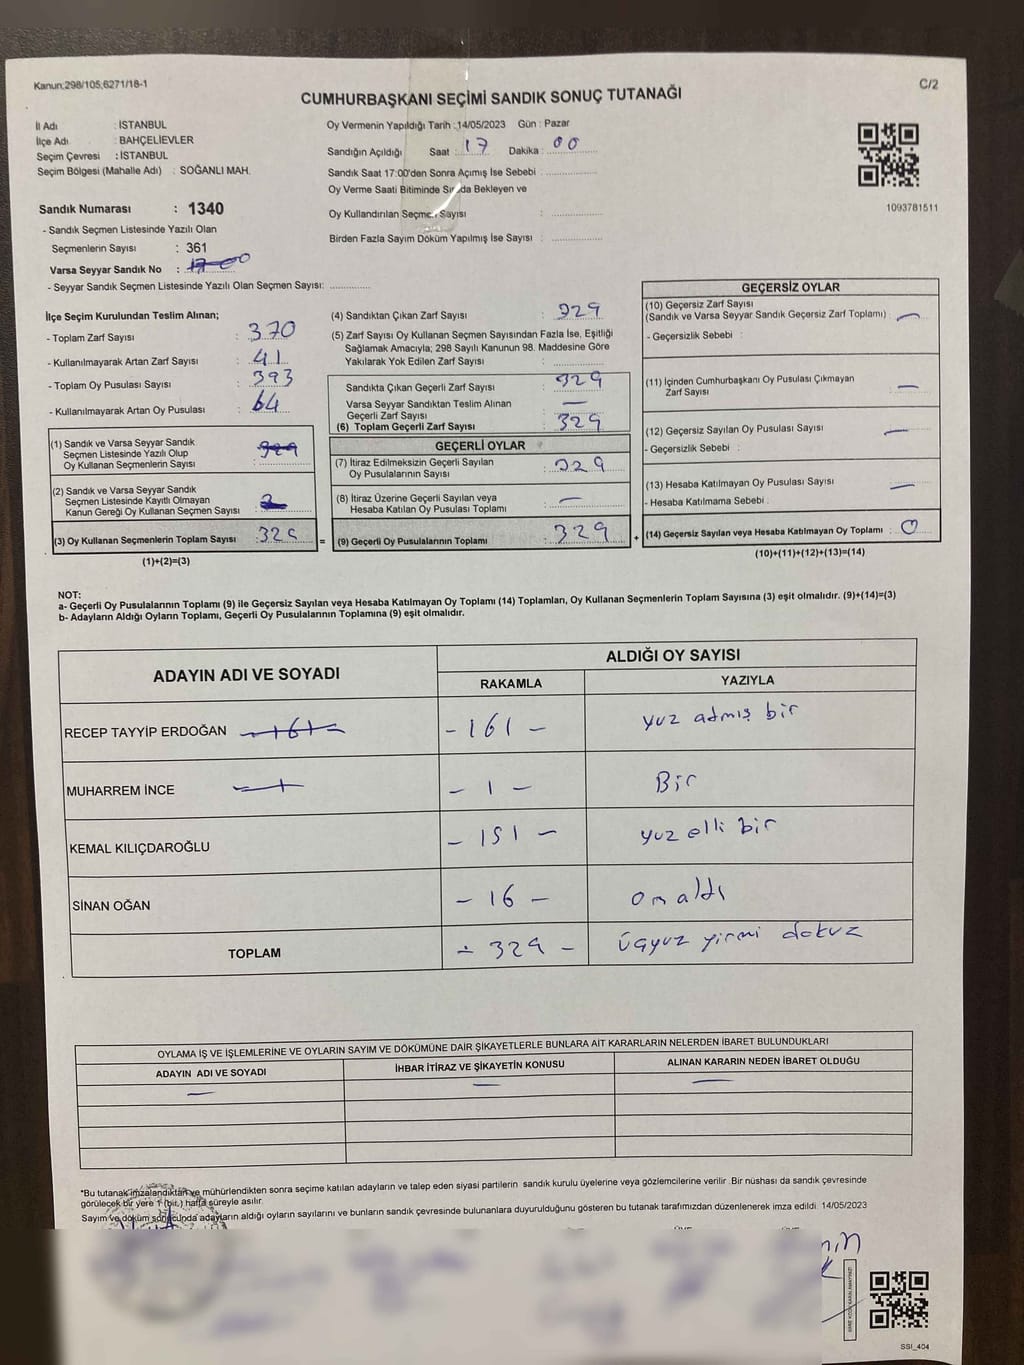 Kanun:298/105;6271/18-1
C/2
CUMHURBAŞKANI SEÇİMİ SANDIK SONUÇ TUTANAĞI
İl Adı : İSTANBUL
İlçe Adı : BAHÇELİEVLER
Seçim Çevresi : İSTANBUL
Seçim Bölgesi (Mahalle Adı) : SOĞANLI MAH.
Oy Vermenin Yapıldığı Tarih :14/05/2023 Gün : Pazar
Sandığın Açıldığı Saat : 17 Dakika : 00
Sandık Saat 17:00'den Sonra Açımış İse Sebebi :
Oy Verme Saati Bitiminde Sırada Bekleyen ve
Oy Kullandırılan Seçmen Sayısı :
Birden Fazla Sayım Döküm Yapılmış İse Sayısı :
1093781511
Sandık Numarası : 1340
- Sandık Seçmen Listesinde Yazılı Olan
Seçmenlerin Sayısı : 361
Varsa Seyyar Sandık No : 17 00
- Seyyar Sandık Seçmen Listesinde Yazılı Olan Seçmen Sayısı:
İlçe Seçim Kurulundan Teslim Alınan;
- Toplam Zarf Sayısı : 370
- Kullanılmayarak Artan Zarf Sayısı : 41
- Toplam Oy Pusulası Sayısı : 393
- Kullanılmayarak Artan Oy Pusulası : 64
(1) Sandık ve Varsa Seyyar Sandık
Seçmen Listesinde Yazılı Olup
Oy Kullanan Seçmenlerin Sayısı : 329
(2) Sandık ve Varsa Seyyar Sandık
Seçmen Listesinde Kayıtlı Olmayan
Kanun Gereği Oy Kullanan Seçmen Sayısı :
(3) Oy Kullanan Seçmenlerin Toplam Sayısı : 329 =
(1)+(2)=(3)
(4) Sandıktan Çıkan Zarf Sayısı : 329
(5) Zarf Sayısı Oy Kullanan Seçmen Sayısından Fazla İse, Eşitliği
Sağlamak Amacıyla; 298 Sayılı Kanunun 98. Maddesine Göre
Yakılarak Yok Edilen Zarf Sayısı :
Sandıkta Çıkan Geçerli Zarf Sayısı : 329
Varsa Seyyar Sandıktan Teslim Alınan
Geçerli Zarf Sayısı : —
(6) Toplam Geçerli Zarf Sayısı : 329
GEÇERLİ OYLAR
(7) İtiraz Edilmeksizin Geçerli Sayılan
Oy Pusulalarının Sayısı : 329
(8) İtiraz Üzerine Geçerli Sayılan veya
Hesaba Katılan Oy Pusulası Toplamı : —
(9) Geçerli Oy Pusulalarının Toplamı : 329 +
GEÇERSİZ OYLAR
(10) Geçersiz Zarf Sayısı
(Sandık ve Varsa Seyyar Sandık Geçersiz Zarf Toplamı) : —
- Geçersizlik Sebebi :
(11) İçinden Cumhurbaşkanı Oy Pusulası Çıkmayan
Zarf Sayısı : —
(12) Geçersiz Sayılan Oy Pusulası Sayısı : —
- Geçersizlik Sebebi :
(13) Hesaba Katılmayan Oy Pusulası Sayısı : —
- Hesaba Katılmama Sebebi :
(14) Geçersiz Sayılan veya Hesaba Katılmayan Oy Toplamı : 0
(10)+(11)+(12)+(13)=(14)
NOT:
a- Geçerli Oy Pusulalarının Toplamı (9) ile Geçersiz Sayılan veya Hesaba Katılmayan Oy Toplamı (14) Toplamları, Oy Kullanan Seçmenlerin Toplam Sayısına (3) eşit olmalıdır. (9)+(14)=(3)
b- Adayların Aldığı Oyların Toplamı, Geçerli Oy Pusulalarının Toplamına (9) eşit olmalıdır.
ADAYIN ADI VE SOYADI
ALDIĞI OY SAYISI
RAKAMLA YAZIYLA
RECEP TAYYİP ERDOĞAN -161- - 161 - yuz atmış bir
MUHARREM İNCE -1- - 1 - Bir
KEMAL KILIÇDAROĞLU - 151 - yuz elli bir
SİNAN OĞAN - 16 - on altı
TOPLAM - 329 - üçyuz yirmi dokuz
OYLAMA İŞ VE İŞLEMLERİNE VE OYLARIN SAYIM VE DÖKÜMÜNE DAİR ŞİKAYETLERLE BUNLARA AİT KARARLARIN NELERDEN İBARET BULUNDUKLARI
ADAYIN ADI VE SOYADI İHBAR İTİRAZ VE ŞİKAYETİN KONUSU ALINAN KARARIN NEDEN İBARET OLDUĞU
— — —
*Bu tutanak imzalandıktan ve mühürlendikten sonra seçime katılan adayların ve talep eden siyasi partilerin sandık kurulu üyelerine veya gözlemcilerine verilir .Bir nüshası da sandık çevresinde
görülecek bir yere 1 (bir.) hafta süreyle asılır.
Sayım ve döküm sonucunda adayların aldığı oyların sayılarını ve bunların sandık çevresinde bulunanlara duyurulduğunu gösteren bu tutanak tarafımızdan düzenlenerek imza edildi. 14/05/2023
SSI_404